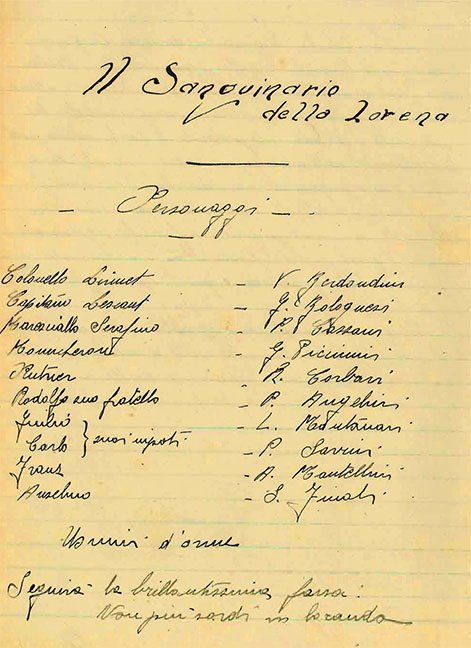 Il Sanguinario
della Lorena
- Personaggi -
Colonello - V. Berdondini
Capitano Lessant - G. Bolognesi
Maresciallo Serafino - P. Cassani
- G. Piccinini
- R. Corbari
Rodolfo suo fratello - P. Angelini
Giulio - L. Montanari
Carlo } suoi nipoti - P. Savini
Franz - A. Mantellini
Anselmo - S.
Uomini d'arme
Seguirà la brillantissima farsa:
Non più sordi in locanda